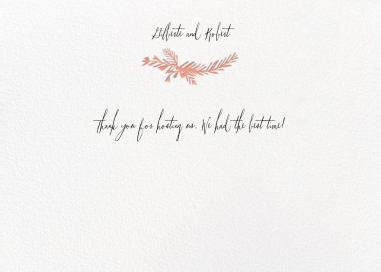 and Robert
thank you for hosting us. We had the best time!